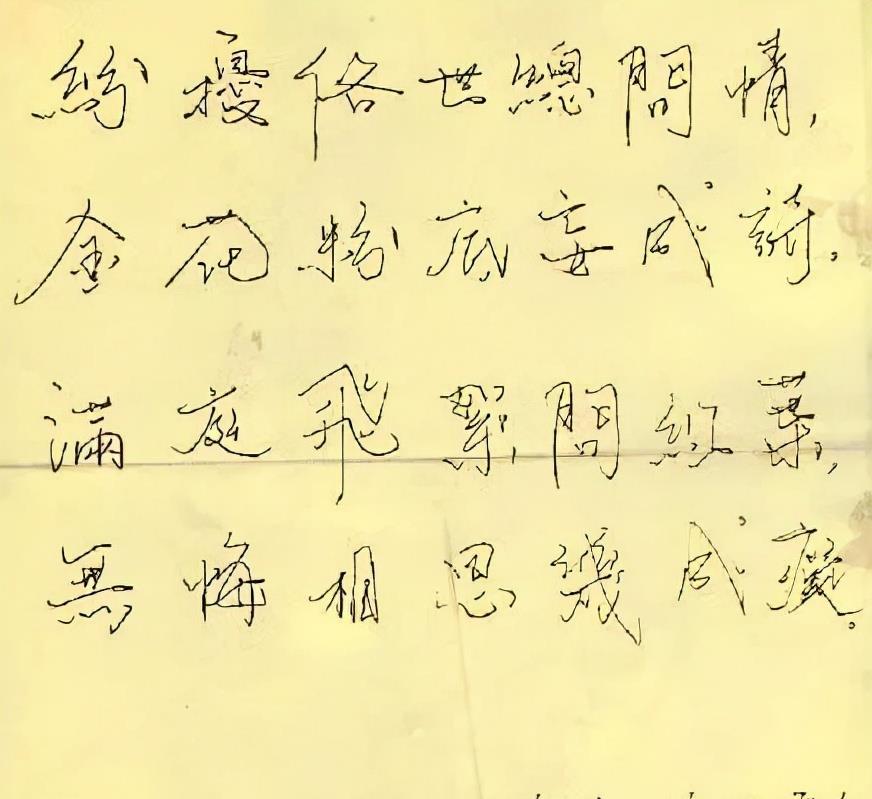 紛擾俗世總問情，
金花粉底妄成詩。
滿庭飛絮問紛葉，
無悔相思幾成癡。